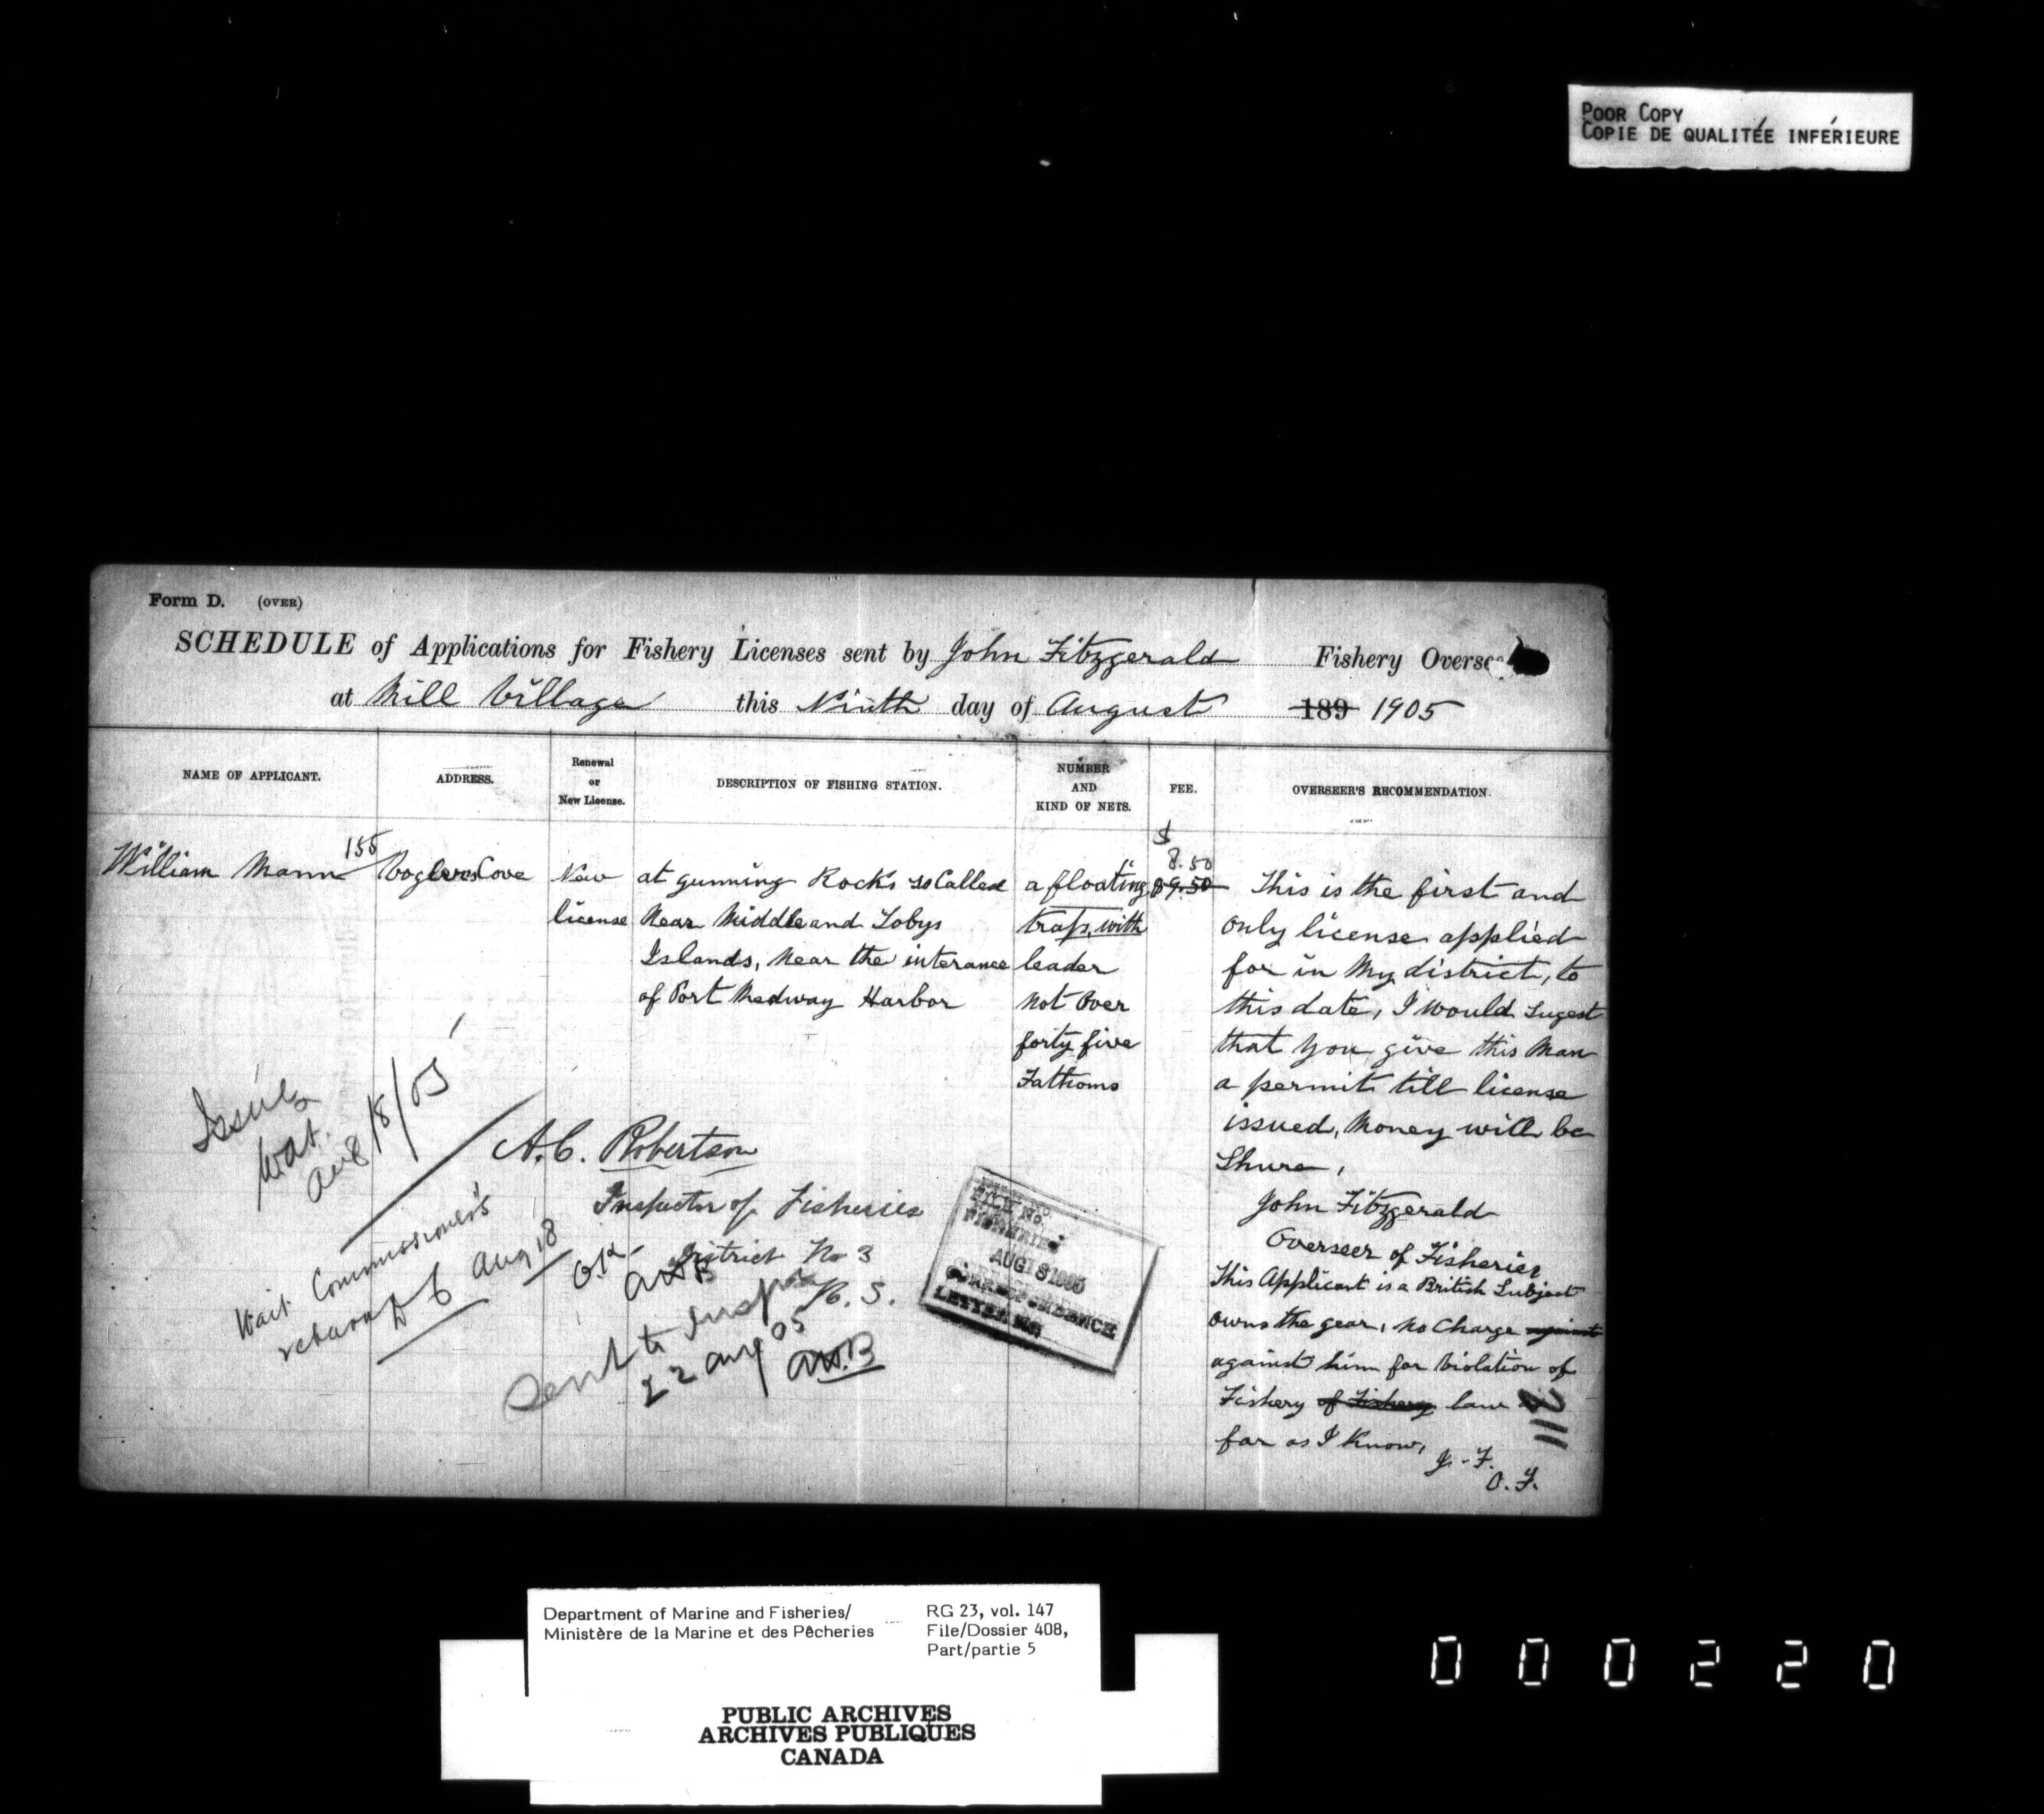 POOR COPY
COPIE DE QUALITÉE INFÉRIEURE
Form D. (OVER)
SCHEDULE of Applications for Fishery Licenses sent by John Fitzgerald Fishery Overse
at Mill Village this Ninth day of August 189 1905
NAME OF APPLICANT.
ADDRESS.
Renewal
or
New License.
DESCRIPTION OF FISHING STATION.
NUMBER
AND
KIND OF NETS.
FEE.
OVERSEER'S RECOMMENDATION.
William Mann
155
Voglers Cove
New
license
at gunning Rocks so Called
Near Middle and Tobys
Islands, Near the interance
of Port Medway Harbor
a floating
trap, with
leader
Not Over
forty five
Fathoms
$
8.50
89.50
This is the first and
only license applied
for in My district, to
this date, I would Sugest
that you give this Man
a permit till license
issued, Money will be
Shure,
John Fitzgerald
Overseer of Fisheries
This Applicant is a British Subject
owns the gear, no Charge against
against him for Violation of
Fishery of Fishery law
far as I Know,
J. F.
O. F.
Issue
Wat.
Aug 18/05
A. C. Robertson
Inspector of Fisheries
District No 3
N. S.
Wait Commissioner's
return
Aug 18
O.K.
AWB
Sent to Insp
22 Aug 05
AW.B
FISHERIES
AUG 18 1905
CORRESPONDENCE
LETTER No.
Department of Marine and Fisheries/
Ministère de la Marine et des Pêcheries
RG 23, vol. 147
File/Dossier 408,
Part/partie 5
PUBLIC ARCHIVES
ARCHIVES PUBLIQUES
CANADA
000220